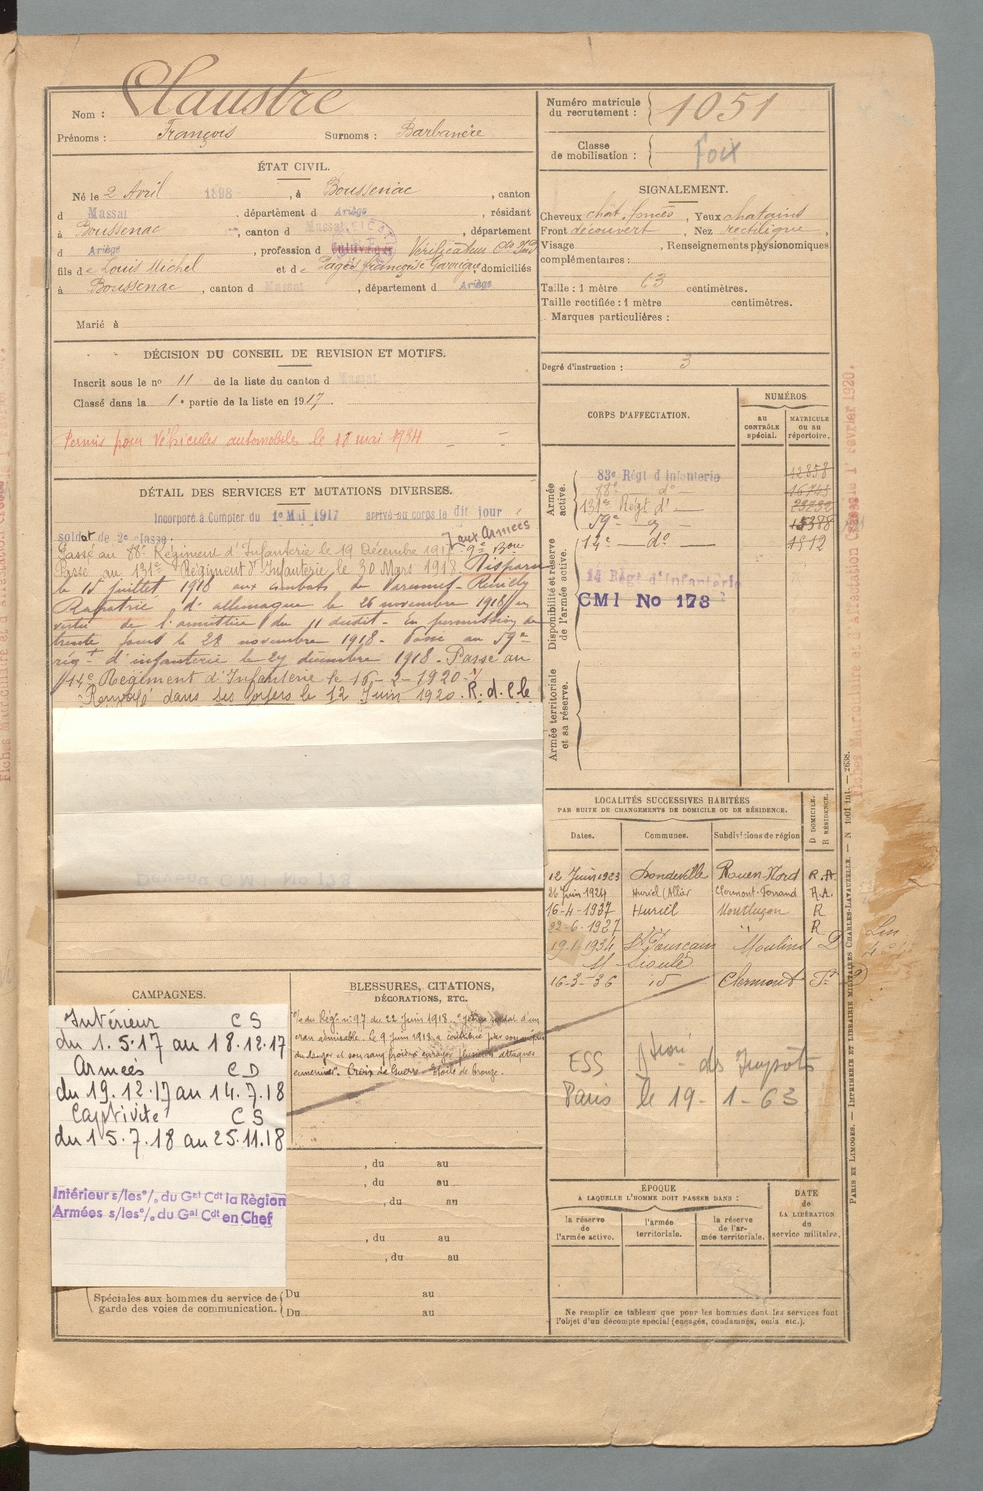 Nom : Claustre
Prénoms : François Surnoms : Barbanère
ÉTAT CIVIL.
Né le 2 Avril 1898, à Boussenac, canton
d Massat, département d Ariège, résidant
à Boussenac, canton d Massat, département
d Ariège, profession d Cultivateur Vérificateur
fils de Louis Michel et de Pagès Françoise Garrigue, domiciliés
à Boussenac, canton d Massat, département d Ariège
Marié à
DÉCISION DU CONSEIL DE REVISION ET MOTIFS.
Inscrit sous le no 11 de la liste du canton d Massat
Classé dans la 1e partie de la liste en 1917.
Permis pour Véhicules automobiles le 18 mai 1934
DÉTAIL DES SERVICES ET MUTATIONS DIVERSES.
Incorporé à Compter du 1er Mai 1917 arrivé au corps le dit jour
soldat de 2e classe.
Passé au 88e Régiment d'Infanterie le 19 Décembre 1917 aux Armées 9e Bon
Passé au 131e Régiment d'Infanterie le 30 Mars 1918. Disparu
le 15 juillet 1918 aux combats de
Rapatrié d'allemagne le 26 novembre 1918 en
vertu de l'armistice du 11 dudit. En permission de
trente jours le 28 novembre 1918. Passé au 59e
régt d'infanterie le 27 décembre 1918. Passé au
14e Régiment d'Infanterie le 16-2-1920.
Renvoyé dans ses foyers le 12 Juin 1920. R. d. C le
CAMPAGNES.
Intérieur C S
du 1.5.17 au 18.12.17
Armées C D
du 19.12.17 au 14.7.18
Captivité C S
du 15.7.18 au 25.11.18
Intérieur s/les °/. du Gal Cdt la Région
Armées s/les °/. du Gal Cdt en Chef
Spéciales aux hommes du service de garde des voies de communication.
BLESSURES, CITATIONS,
DÉCORATIONS, ETC.
du Régt no 97 du 22 Juin 1918. soldat d'un
cran admirable. Le 9 Juin 1918, a contribué par son mépris
du danger et son sang froid à enrayer plusieurs attaques
ennemies. Croix de Guerre. Étoile de bronze.
, du au
, du au
, du au
, du au
, du au
Du au
Du au
Numéro matricule
du recrutement : 1051
Classe
de mobilisation : Foix
SIGNALEMENT.
Cheveux chat. foncés, Yeux chatains
Front découvert, Nez rectiligne,
Visage , Renseignements physionomiques
complémentaires :
Taille : 1 mètre 63 centimètres.
Taille rectifiée : 1 mètre centimètres.
Marques particulières :
Degré d'instruction : 3
CORPS D'AFFECTATION.
NUMÉROS
au
CONTRÔLE
spécial.
MATRICULE
ou au
répertoire.
Armée active.
83e Régt d'Infanterie 12858
88e do 16745
131e Régt d'
59e 15388
14e do 1812
Disponibilité et réserve de l'armée active.
14 Régt d'Infanterie
CMI No 178
Armée territoriale et sa réserve.
LOCALITÉS SUCCESSIVES HABITÉES
PAR SUITE DE CHANGEMENTS DE DOMICILE OU DE RÉSIDENCE.
Dates. Communes. Subdivisions de région
D DOMICILE.
R RÉSIDENCE.
12 Juin 1923 Londeville Rouen-Nord R.A.
26 juin 1924 Huriel (Allier Clermont-Ferrand R.A.
16-4-1937 Huriel Montluçon R
22-6-1927 " R
19-1-1934 St Pourçain Moulins D
16-3-36 id Clermont
ESS des Impôts
Paris le 19-1-63
ÉPOQUE
A LAQUELLE L'HOMME DOIT PASSER DANS :
la réserve
de
l'armée active.
l'armée
territoriale.
la réserve
de l'ar-
mée territoriale.
DATE
de
LA LIBÉRATION
du
service militaire.
Ne remplir ce tableau que pour les hommes dont les services font
l'objet d'un décompte spécial (engagés, condamnés, omis etc.).
PARIS ET LIMOGES. — IMPRIMERIE ET LIBRAIRIE MILITAIRES CHARLES-LAVAUZELLE. — N 1001 int. — 2638.